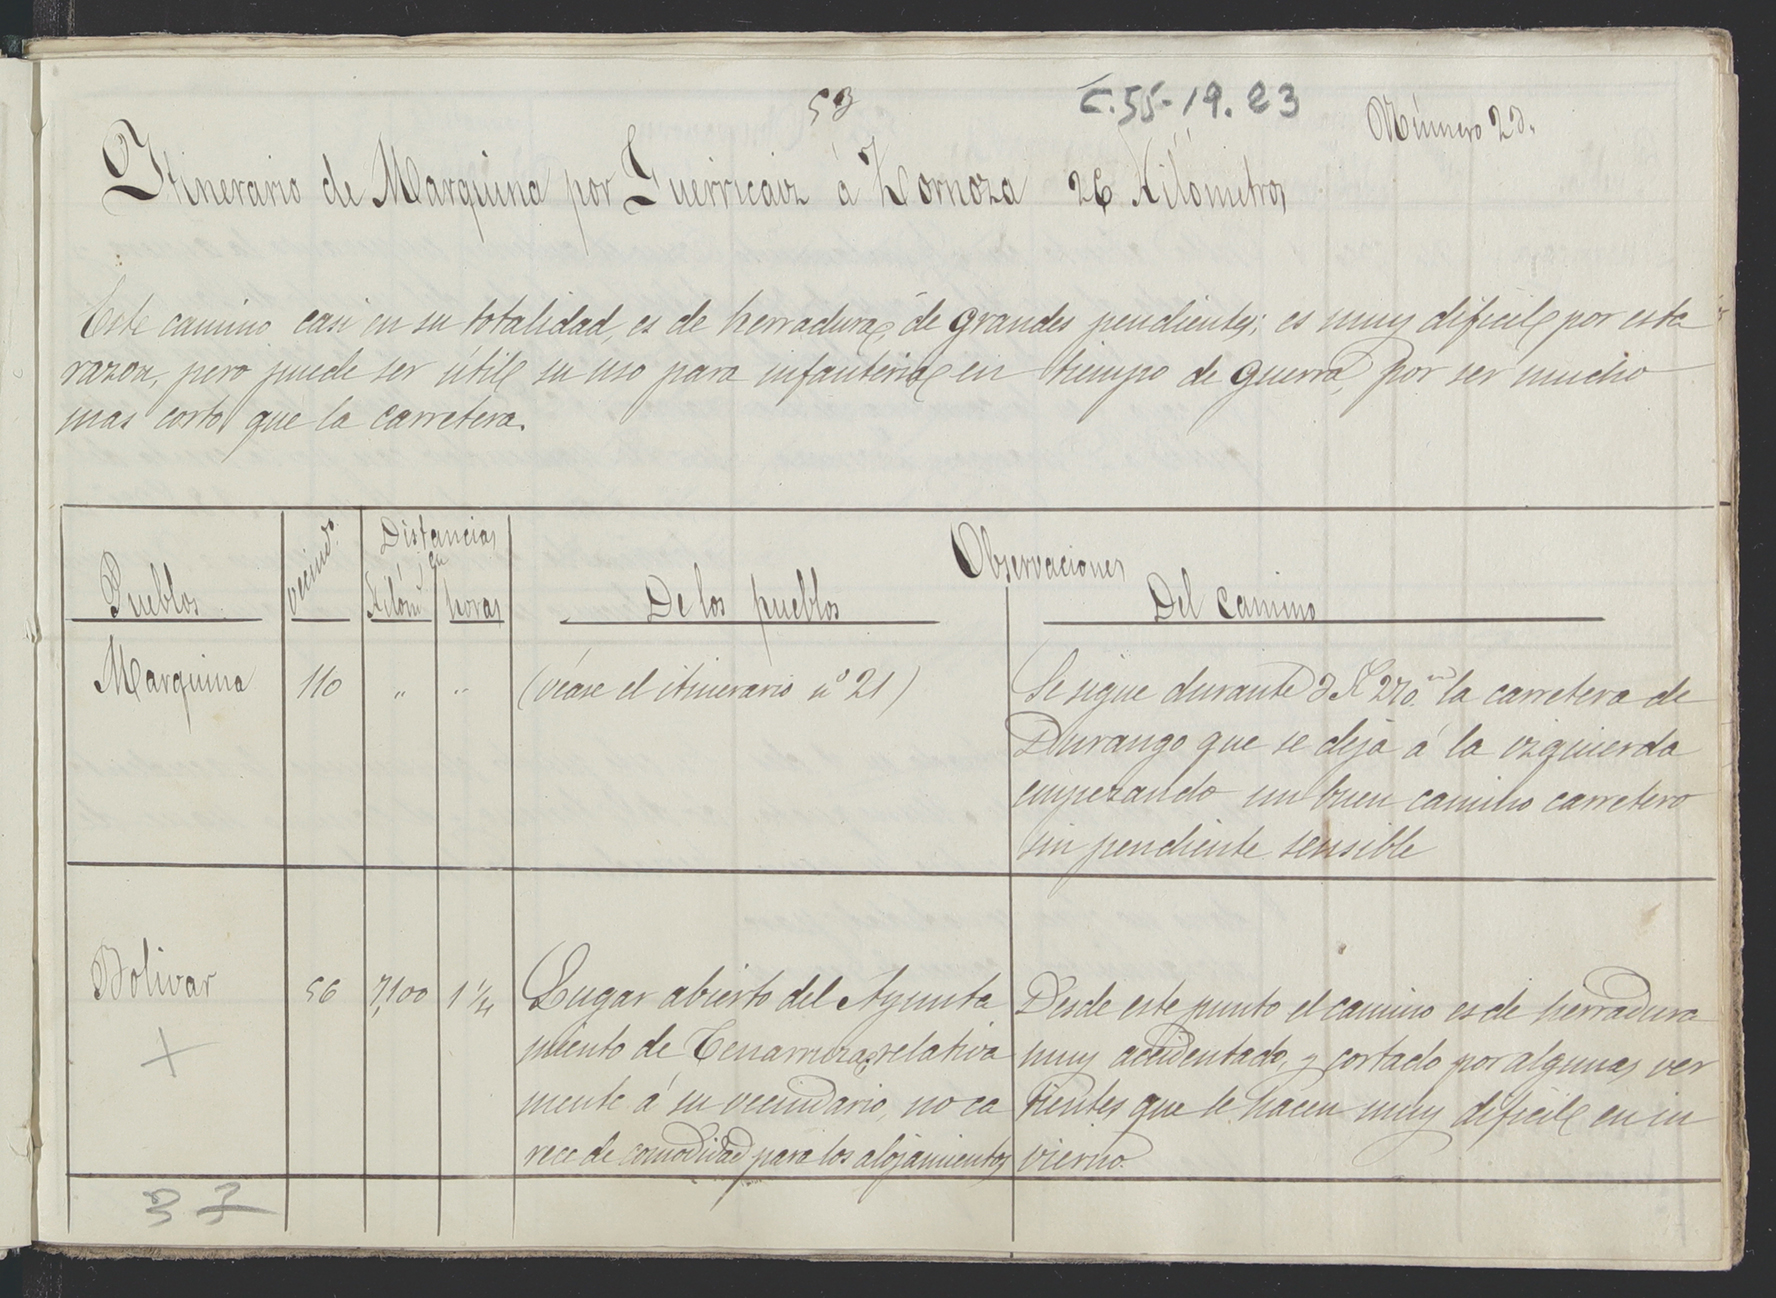 53
C.55-19.23
Número 23.
Itinerario de Marquina por Guerricaiz á Zornoza 26 Kilómetros
Este camino, casi en su totalidad, es de herradura, de grandes pendientes; es muy dificil por esta
razon, pero puede ser útil su uso para infanteria en tiempo de guerra, por ser mucho
mas corto que la carretera.
Pueblos
vecindo.
Distancias
en
Kilóm
horas
Observaciones
De los pueblos
Del camino
Marquina 110 " " (véase el itinerario nº 21)
Se sigue durante 3 K 270 m la carretera de
Durango que se deja á la izquierda
empezando un buen camino carretero
sin pendiente sensible
Bolivar 56 7,100 1 1/4
Lugar abierto del Ayunta
miento de Cenarruza, relativa
mente á su vecindario, no ca
rece de comodidad para los alojamientos
Desde este punto el camino es de herradura
muy accidentado, y cortado por algunas ver
tientes que le hacen muy dificil en in
vierno.
37